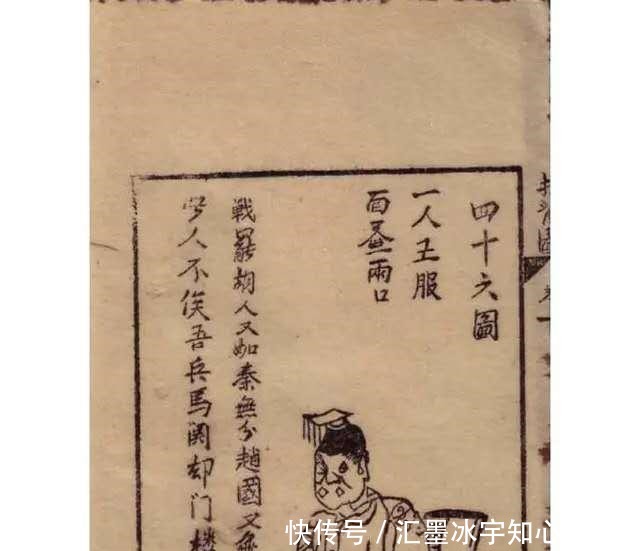 四十六圖
一人王服
面
兩口
戰罷胡人又如秦無分趙國又無
人不俟吾兵馬闲却门楼
推背圖
快传号／汇墨冰宇知心